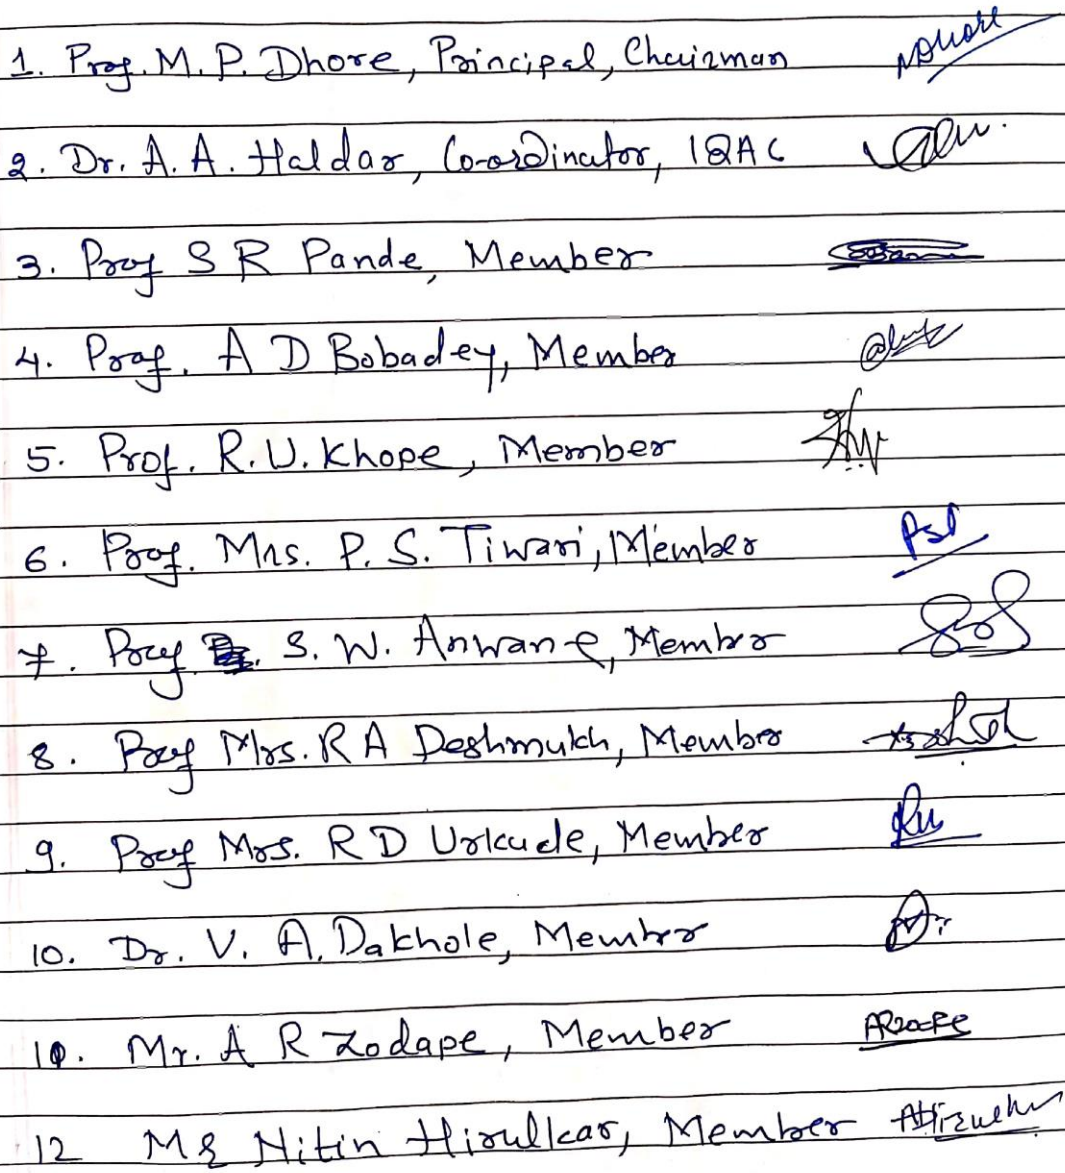 1. Prof. M. P. Dhore, Principal, Chairman
2. Dr. A. A. Haldar, Co-ordinator, IQAC
3. Prof S R Pande, Member
4. Prof. A D Bobadey, Member
5. Prof. R. U. Khope, Member
6. Prof. Mrs. P. S. Tiwari, Member
7. Prof S. W. Anwane, Member
8. Prof Mrs. R A Deshmukh, Member
9. Prof Mrs. R D Urkude, Member
10. Dr. V. A. Dakhole, Member
11. Mr. A R Zodape, Member ARZodape
12 Mr Nitin Hirulkar, Member